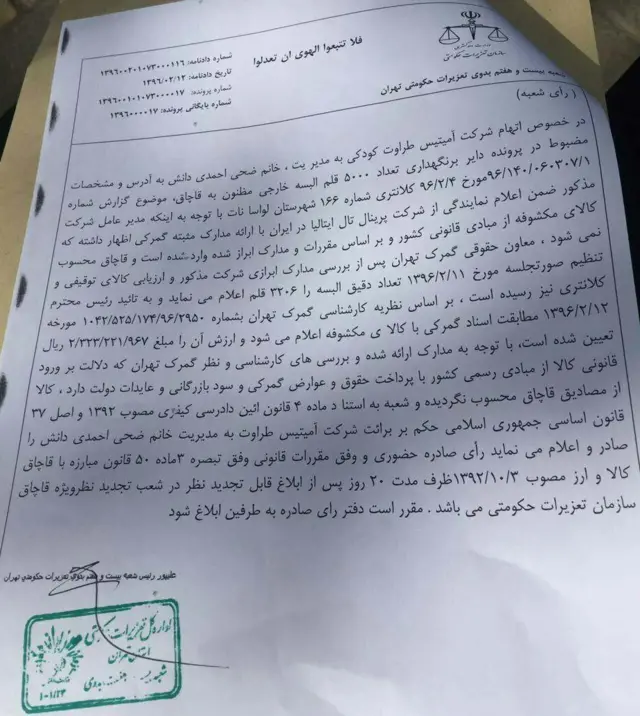 سازمان تعزیرات حکومتی
فلا تتبعوا الهوی ان تعدلوا
شماره دادنامه: ۱۳۹۶۰۰۲۰۱۰۷۳۰۰۰۱۱۶
تاریخ دادنامه: ۱۳۹۶/۰۲/۱۲
شماره پرونده: ۱۳۹۶۰۰۱۰۱۰۷۳۰۰۰۰۱۷
شماره بایگانی پرونده: ۱۳۹۶۰۰۰۱۷
شعبه بیست و هفتم بدوی تعزیرات حکومتی تهران
( رأی شعبه)
در خصوص اتهام شرکت آمیتیس طراوت کودکی به مدیریت ، خانم ضحی احمدی دانش به آدرس و مشخصات
مضبوط در پرونده دایر برنگهداری تعداد ۵۰۰۰ قلم البسه خارجی مظنون به قاچاق، موضوع گزارش شماره
۹۶/۱۴۰/۰۶۰۳۰۷/۱مورخ ۹۶/۲/۴ کلانتری شماره ۱۶۶ شهرستان لواسا نات با توجه به اینکه مدیر عامل شرکت
مذکور ضمن اعلام نمایندگی از شرکت پرینال تال ایتالیا در ایران با ارائه مدارک مثبته گمرکی اظهار داشته که
کالای مکشوفه از مبادی قانونی کشور و بر اساس مقررات و مدارک ابراز شده وارد شده است و قاچاق محسوب
نمی شود ، معاون حقوقی گمرک تهران پس از بررسی مدارک ابرازی شرکت مذکور و ارزیابی کالای توقیفی و
تنظیم صورتجلسه مورخ ۱۳۹۶/۲/۱۱ تعداد دقیق البسه را ۳۲۰۶ قلم اعلام می نماید و به تائید رئیس محترم
کلانتری نیز رسیده است ، بر اساس نظریه کارشناسی گمرک تهران بشماره ۱۰۴۲/۵۲۵/۱۷۴/۹۶/۲۹۵۰ مورخه
۱۳۹۶/۲/۱۲ مطابقت اسناد گمرکی با کالا ی مکشوفه اعلام می شود و ارزش آن را مبلغ ۲/۳۲۳/۲۲۱/۹۶۷ ریال
تعیین شده است، با توجه به مدارک ارائه شده و بررسی های کارشناسی و نظر گمرک تهران که دلالت بر ورود
قانونی کالا از مبادی رسمی کشور با پرداخت حقوق و عوارض گمرکی و سود بازرگانی و عایدات دولت دارد ، کالا
از مصادیق قاچاق محسوب نگردیده و شعبه به استنا د ماده ۴ قانون ائین دادرسی کیفری مصوب ۱۳۹۲ و اصل ۳۷
قانون اساسی جمهوری اسلامی حکم بر برائت شرکت آمیتیس طراوت به مدیریت خانم ضحی احمدی دانش را
صادر و اعلام می نماید رأی صادره حضوری و وفق مقررات قانونی وفق تبصره ۳ماده ۵۰ قانون مبارزه با قاچاق
کالا و ارز مصوب ۱۳۹۲/۱۰/۳ظرف مدت ۲۰ روز پس از ابلاغ قابل تجدید نظر در شعب تجدید نظرویژه قاچاق
سازمان تعزیرات حکومتی می باشد . مقرر است دفتر رای صادره به طرفین ابلاغ شود
علیپور رئیس شعبه بیست و هفتم بدوی تعزیرات حکومتی تهران
اداره کل تعزیرات حکومتی
استان تهران
شعبه بیست هفتم بدوی